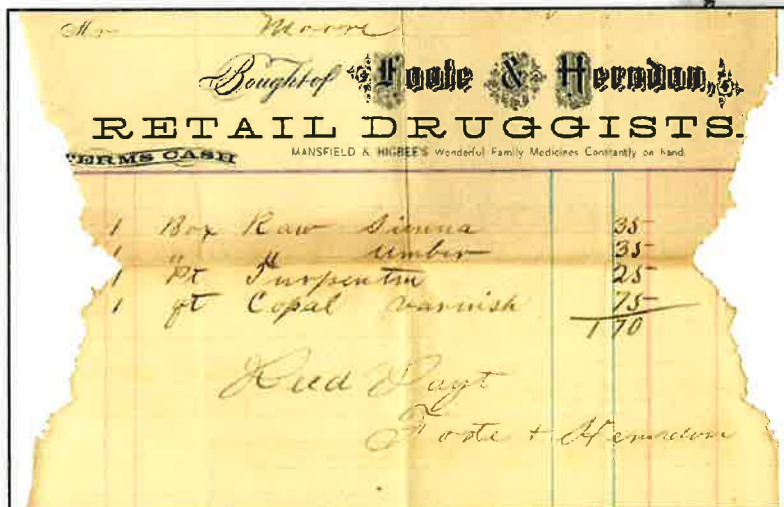 Mr Moore
Bought of Foote & Herndon,
RETAIL DRUGGISTS.
TERMS CASH MANSFIELD & HIGBEE'S Wonderful Family Medicines Constantly on hand.
1 Box Raw Sienna 35
1 " " umber 35
1 Pt Turpentin 25
1 qt Copal varnish 75
1 70
Recd Payt
Foote + Herndon